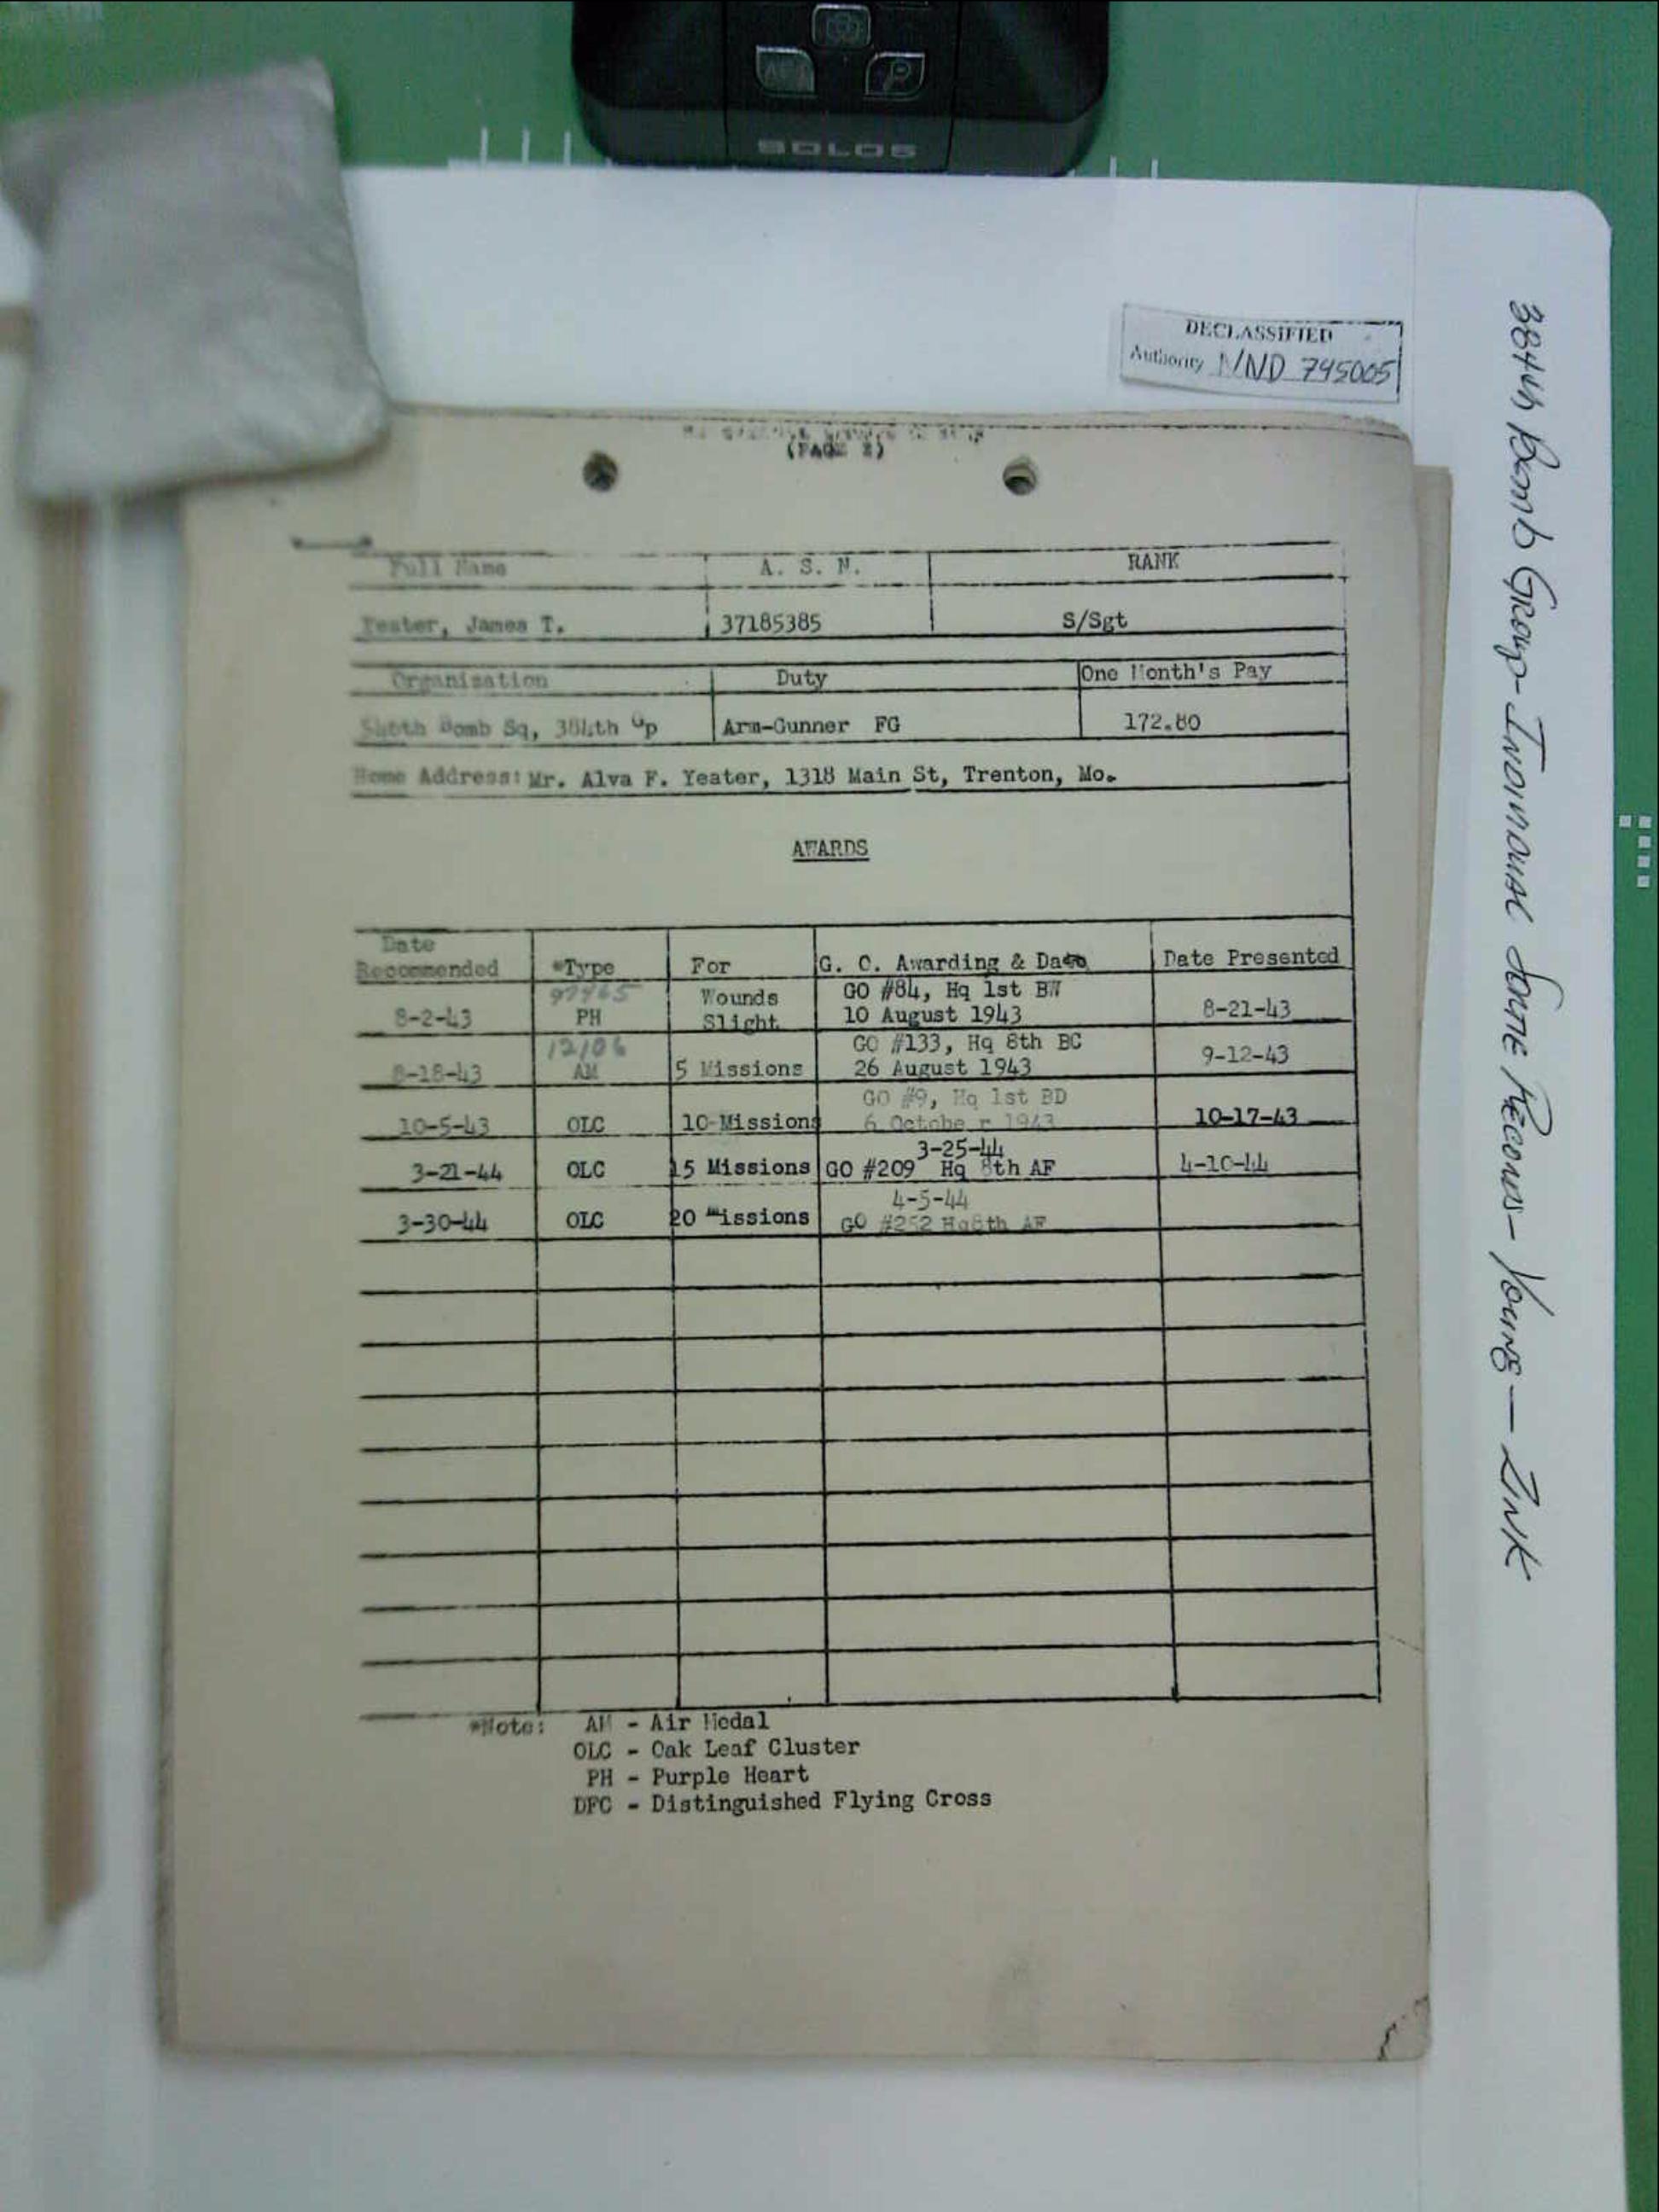 SOLOS
DECLASSIFIED
Authority NND 745005
384th Bomb Group - Individual Sortie Records - Young — Zink
(PAGE 2)
Full Name A. S. N. RANK
Yeater, James T. 37185385 S/Sgt
Organization Duty One Month's Pay
546th Bomb Sq, 384th Gp Arm-Gunner FG 172.80
Home Address: Mr. Alva F. Yeater, 1318 Main St, Trenton, Mo.
AWARDS
Date
Recommended *Type For G. O. Awarding & Date Date Presented
97965 Wounds GO #84, Hq 1st BW
8-2-43 PH Slight 10 August 1943 8-21-43
12106 GO #133, Hq 8th BC
8-18-43 AM 5 Missions 26 August 1943 9-12-43
GO #9, Hq 1st BD
10-5-43 OLC 10 Missions 6 October 1943 10-17-43
3-25-44
3-21-44 OLC 15 Missions GO #209 Hq 8th AF 4-10-44
4-5-44
3-30-44 OLC 20 Missions GO #252 Hq8th AF
*Note: AM - Air Medal
OLC - Oak Leaf Cluster
PH - Purple Heart
DFC - Distinguished Flying Cross